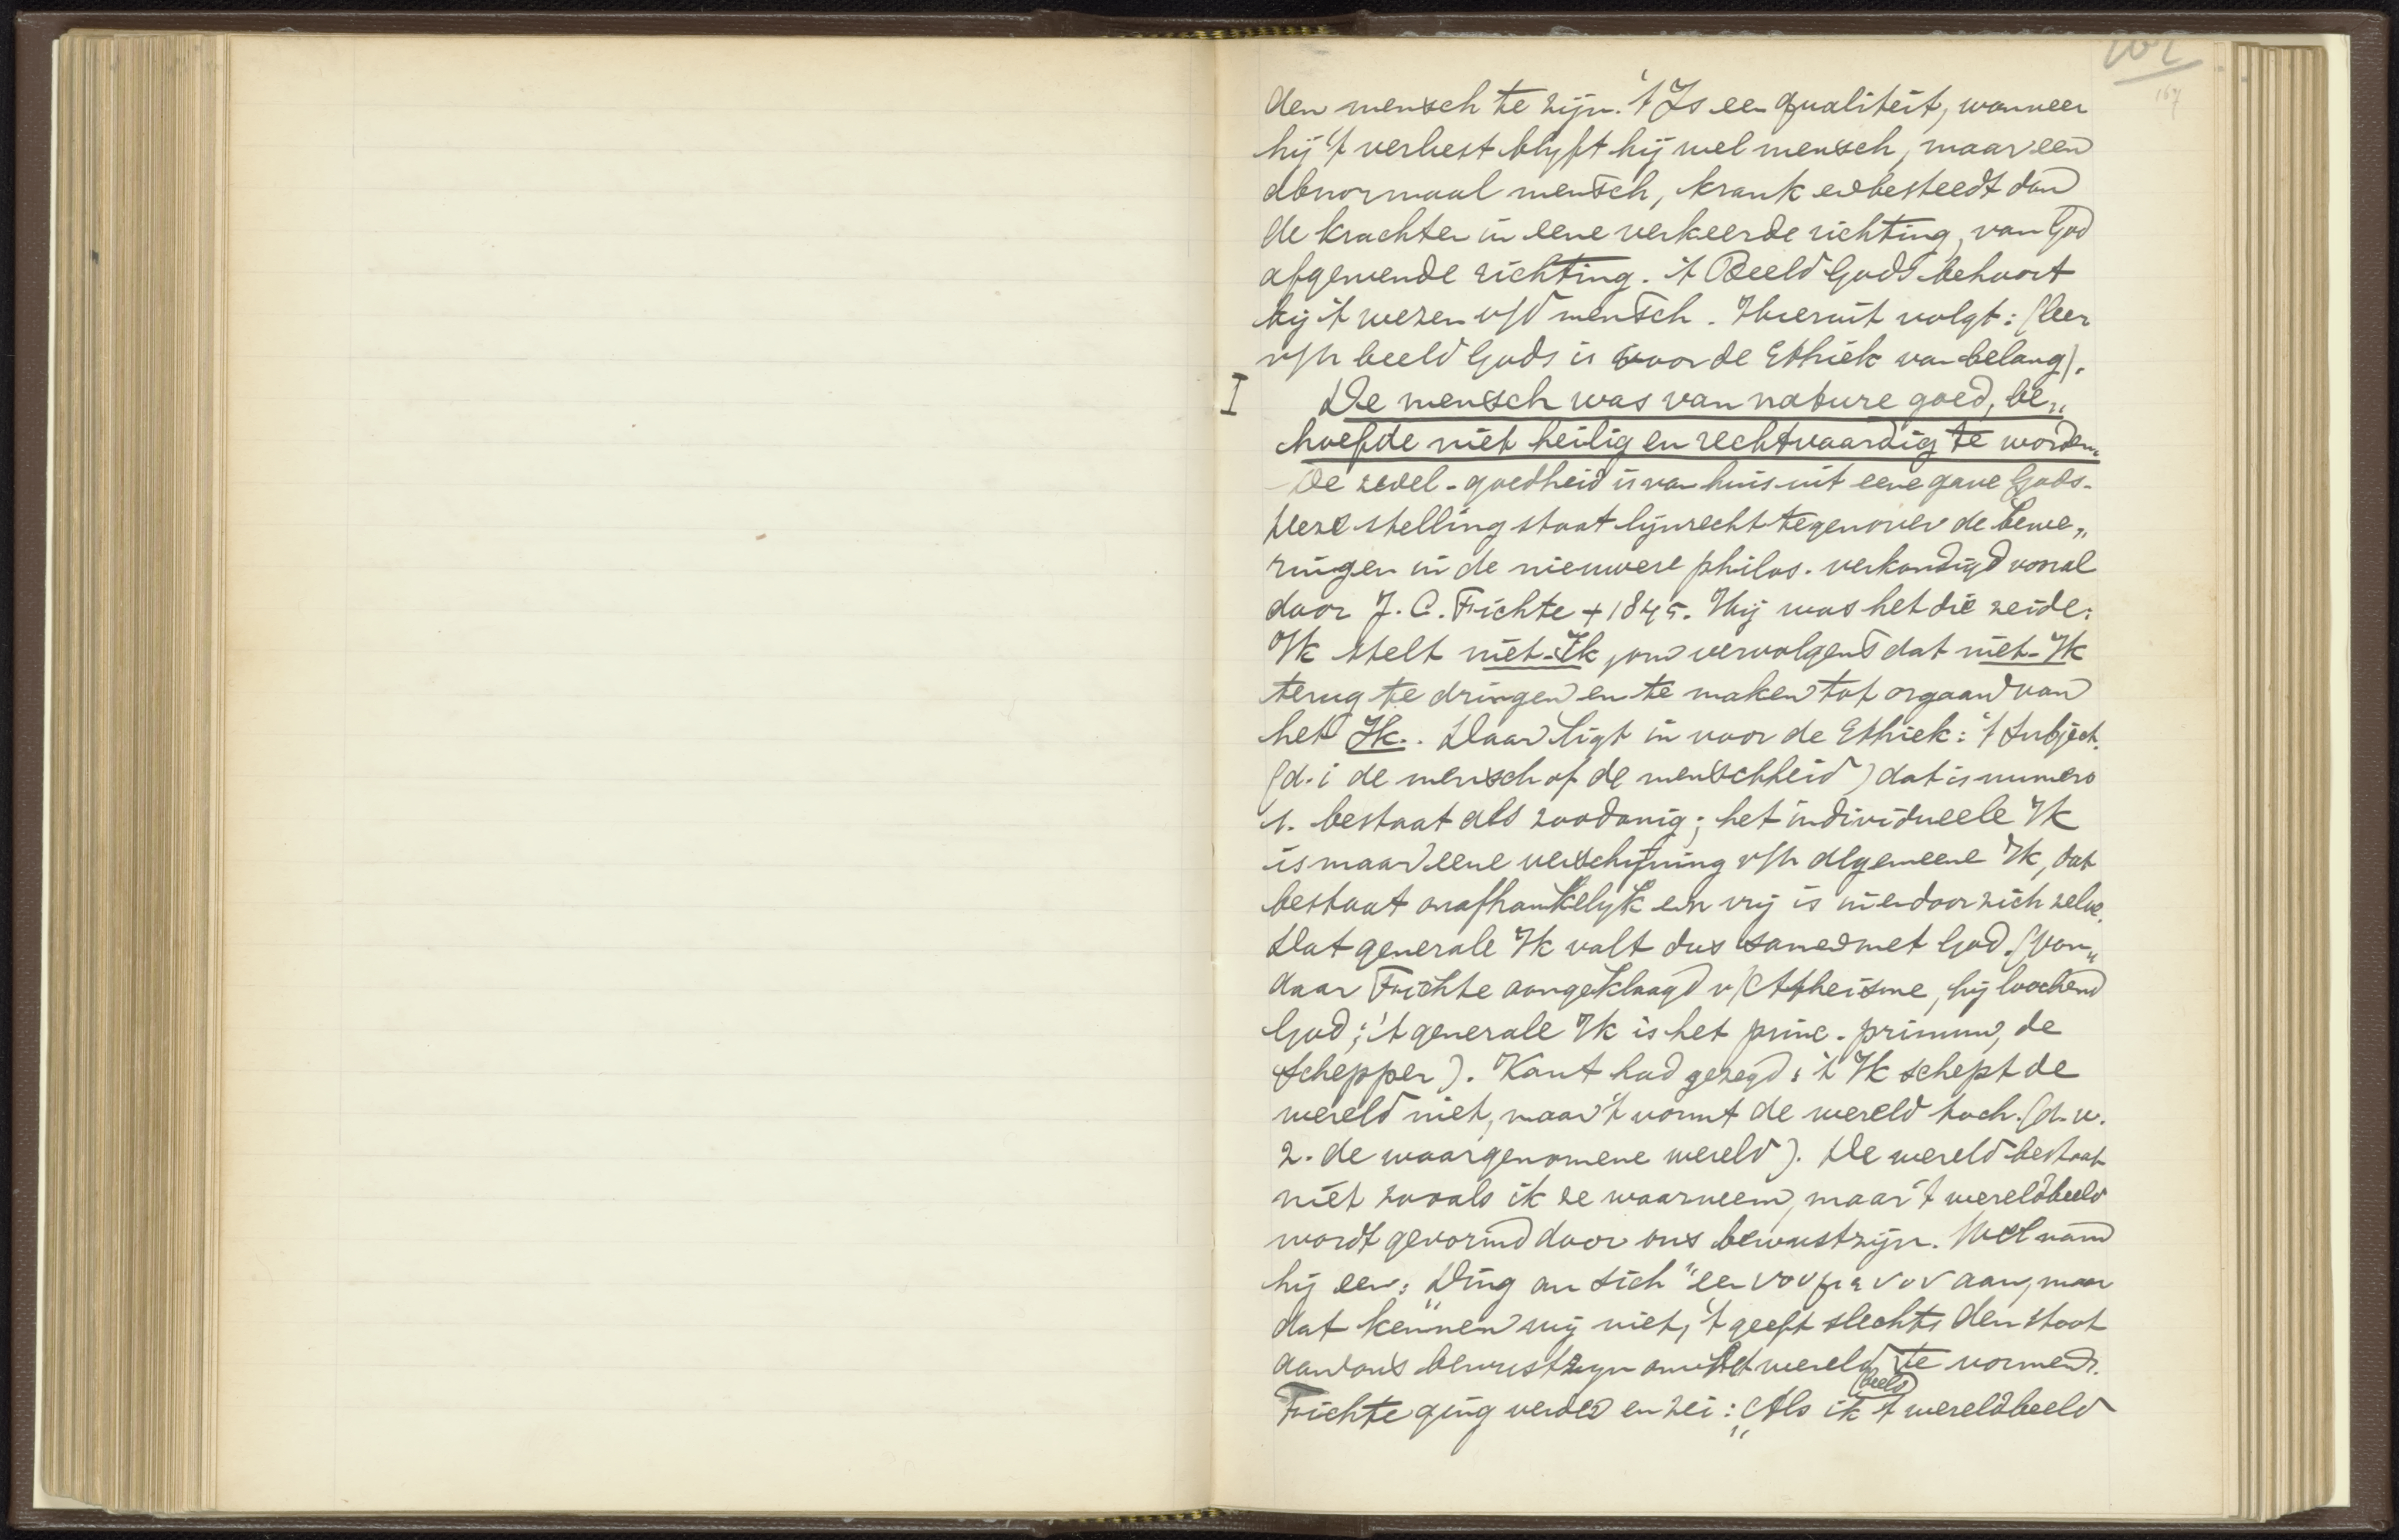 167
den mensch te zijn. 't Is een qualiteit, wanneer
hij 't verliest blyft hij wel mensch, maar een
abnormaal mensch, krank en besteedt dan
de krachten in eene verkeerde richting, van God
afgewende richting. 't Beeld Gods behoort
bij 't wezen v/d mensch. Hieruit volgt: (leer
v/h beeld Gods is voor de Ethiek van belang).
I De mensch was van nature goed, be„
hoefde niet heilig en rechtvaardig te worden.
De zedel-goedheid is van huis uit eene gave Gods.
Deze stelling staat lijnrecht tegenover de bewe„
ringen in de nieuwere philos. verkondigd vooral
door J. C. Fichte + 1845. Hij was het die zeide:
Ik stelt niet-Ik, om vervolgens dat niet-Ik
terug te dringen en te maken tot orgaan van
het Ik. Daar ligt in voor de Ethiek: 't Subject.
(d. i de mensch of de menschheid) dat is numero
1. bestaat als zoodanig; het individueele Ik
is maar eene verschijning v/h algemeene Ik, dat
bestaat onafhankelyk en vrij is in en door zich zelve.
Dat generale Ik valt dus samen met God. (Van„
daar Fichte aangeklaagd v/ Atheisme, hij loochend
God; 't generale Ik is het princ. primum, de
Schepper). Kant had gezegd: 't Ik schept de
wereld niet, maar 't vormt de wereld toch. (d. w.
z. de waargenomene wereld). De wereld bestaat
niet zooals ik ze waarneem, maar 't wereldbeeld
wordt gevormd door ons bewustzijn. Wel nam
hij een: „Ding an sich" een νουμενον aan, maar
dat kennen wij niet, 't geeft slechts den stoot
aan ons bewustzyn om het wereld (beeld) te vormen.
Fichte ging verder en zei: „Als ik 't wereldbeeld